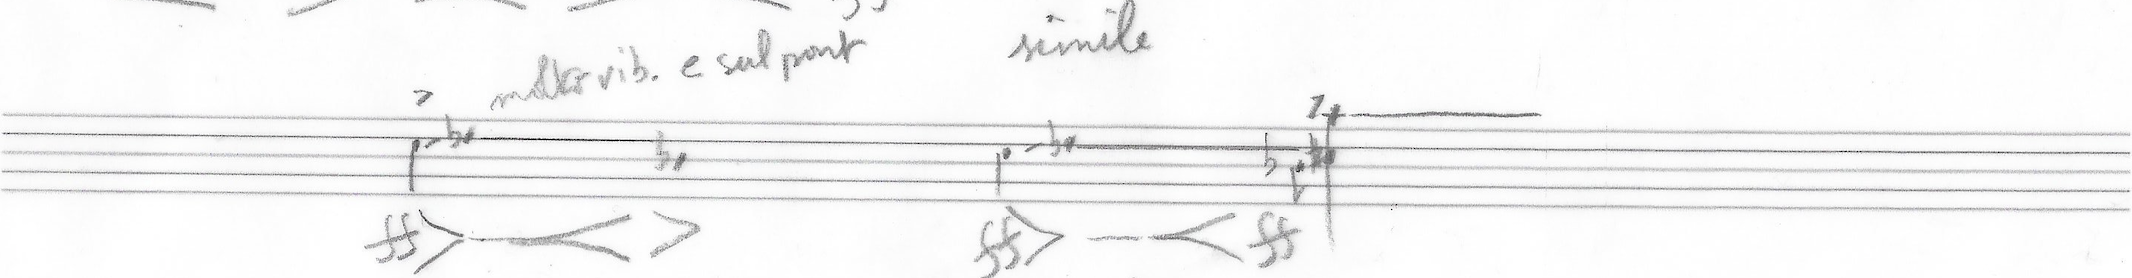 molto vib. e sul pont simile
ff ff ff